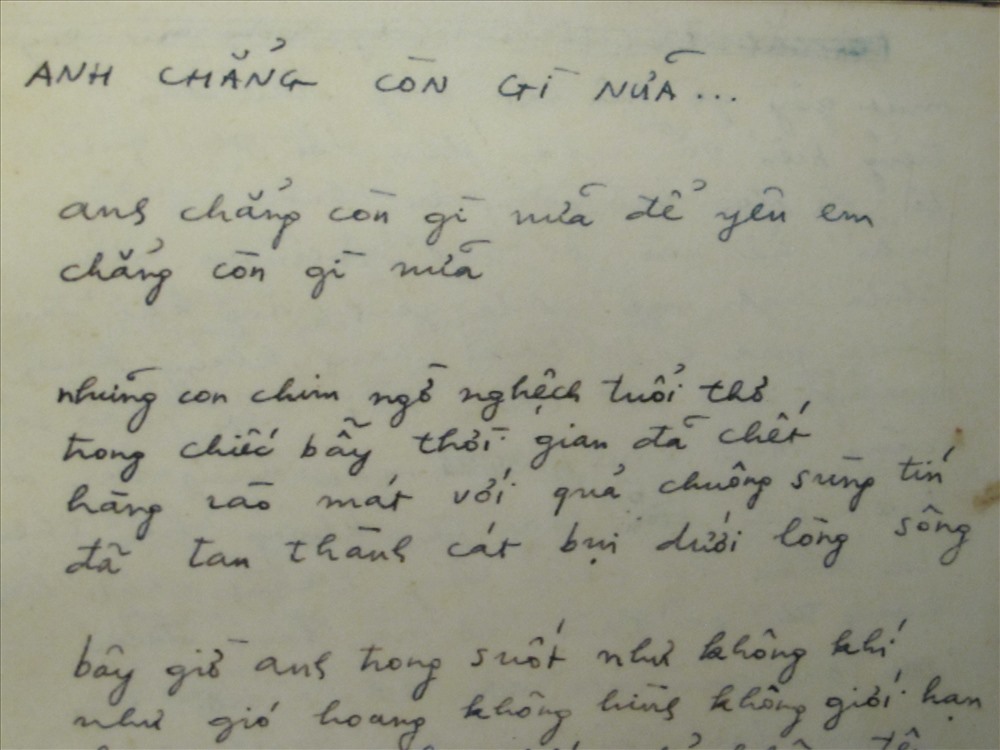 ANH CHẲNG CÒN GÌ NỮA...
anh chẳng còn gì nữa để yêu em
chẳng còn gì nữa
những con chim ngờ nghệch tuổi thơ
trong chiếc bẫy thời gian đã chết
hàng rào mát với quả chuông sùng tín
đã tan thành cát bụi dưới lòng sông
bây giờ anh trong suốt như không khí
như gió hoang không hình không giới hạn